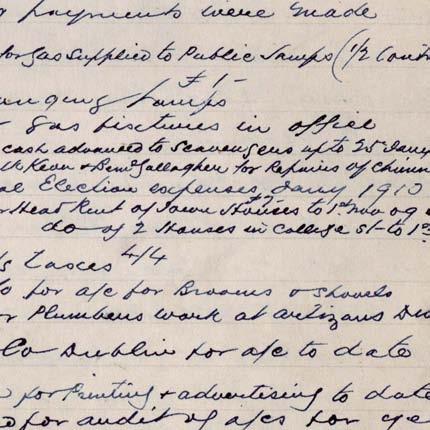 payments were made
for gas supplied to Public Lamps (1/2
£1-
Lamps
gas fixtures in office
cash advanced to Scavengers up to 25 Jany
McKeon & Gallagher for Repairs of
Election expenses Jany 1910
Head Rent of Town Houses to 1st Nov 09
do of 2 Houses in College St to 1st
Taxes 4/4
for a/c for Brooms & shovels
Plumbers work at Artizans
Co Dublin for a/c to date
for Printing & advertising to date
for audit of a/cs for